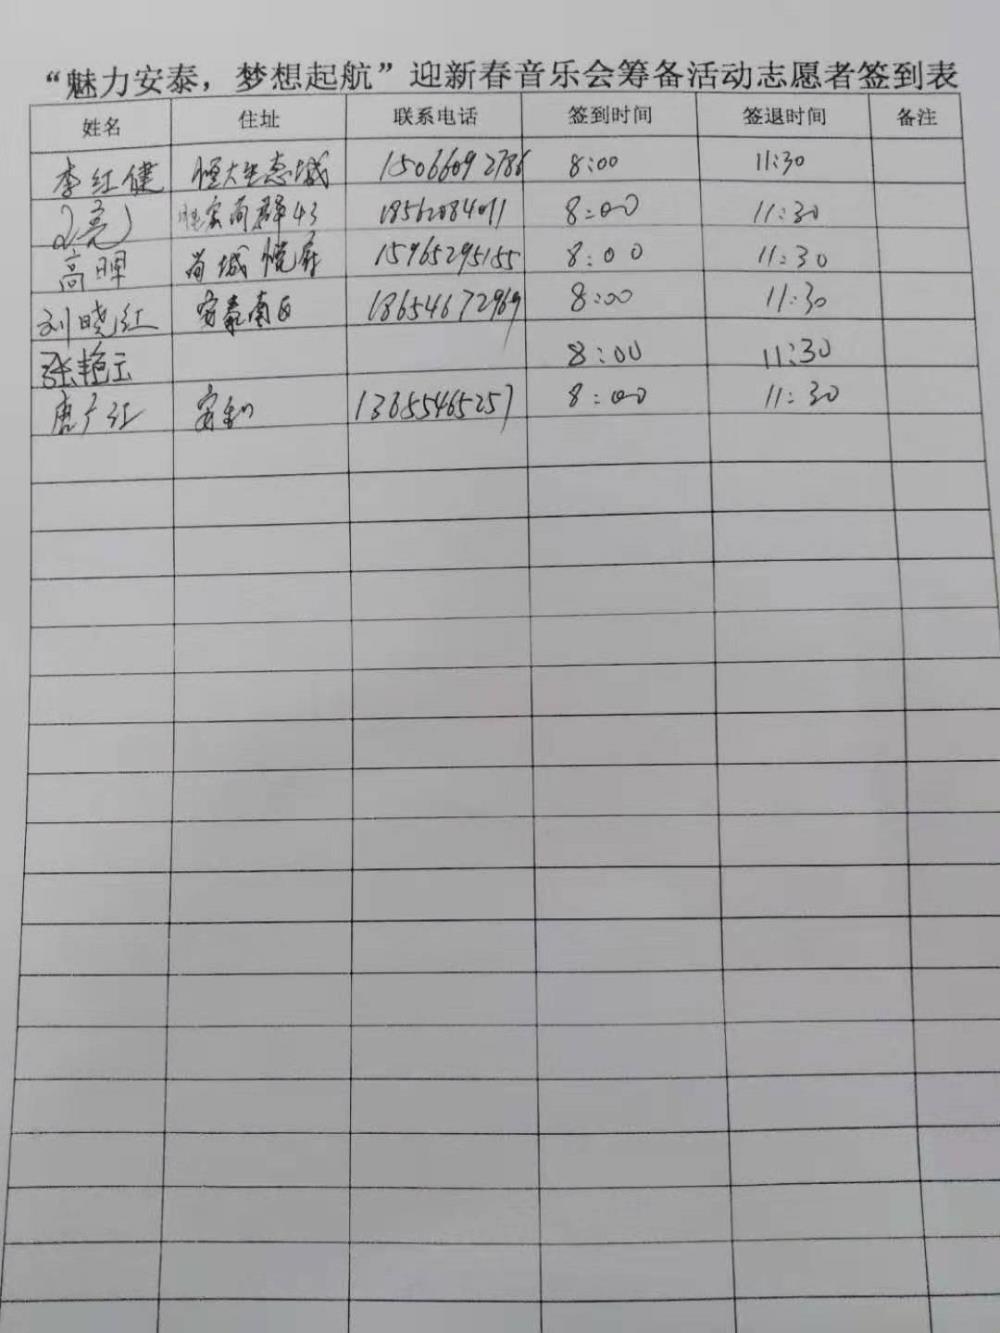 “魅力安泰，梦想起航”迎新春音乐会筹备活动志愿者签到表
姓名 住址 联系电话 签到时间 签退时间 备注
李红健 恒大生态城 15066092786 8:00 11:30
亮 43 18562084011 8:00 11:30
高晖 尚城悦府 15965295155 8:00 11:30
刘晓红 安泰南区 18654672969 8:00 11:30
张艳玉 8:00 11:30
唐广江 安和 13655465257 8:00 11:30